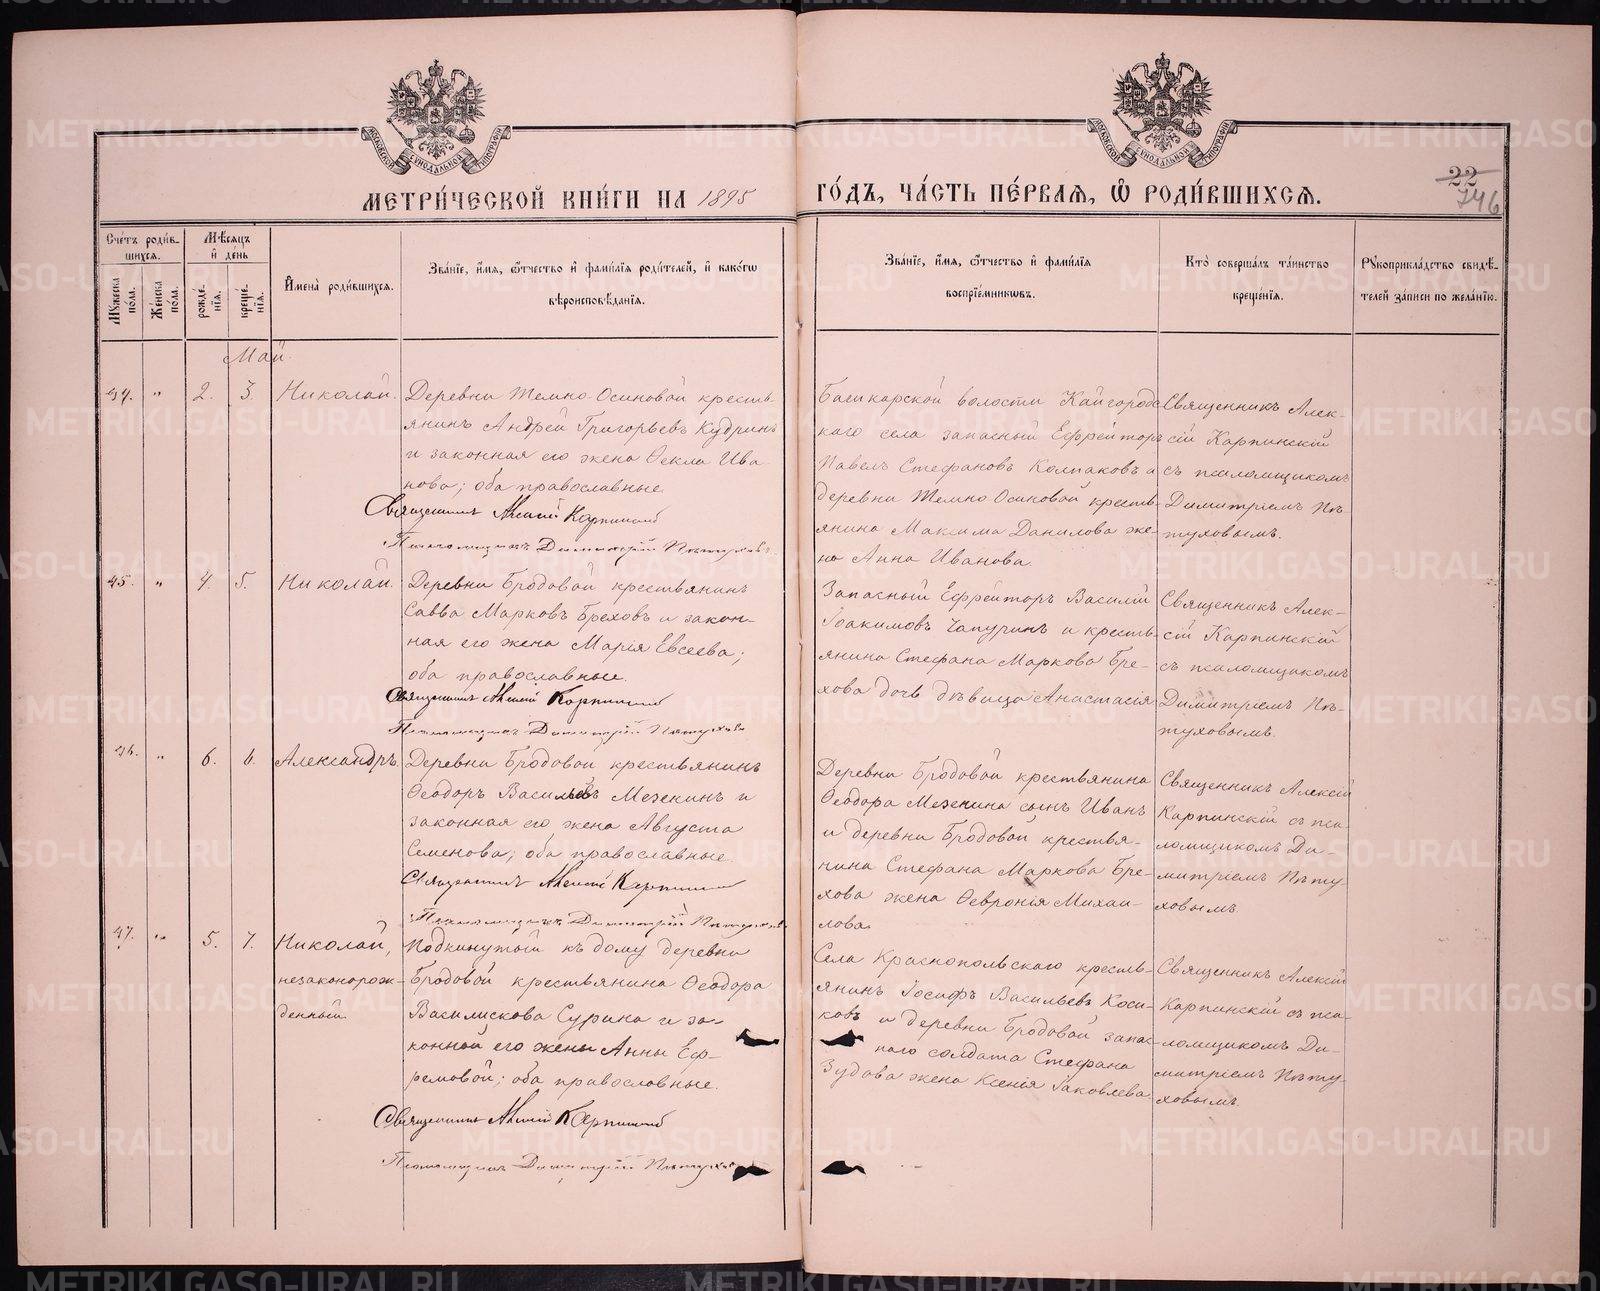 МОСКОВСКОЙ СѴНОДАЛЬНОЙ ТИПОГРАФІИ
МОСКОВСКОЙ СѴНОДАЛЬНОЙ ТИПОГРАФІИ
МЕТРИ́ЧЕСКОЙ КНИ́ГИ НА 1895
ГО́ДЪ, ЧА́СТЬ ПЕ́РВАѦ, Ѿ РОДИ́ВШИХСѦ.
22
746
Сче́тъ роди́в-
шихсѧ.
Мꙋ́жеска по́ла.
Же́нска по́ла.
Мѣ́сѧцъ
и҆ де́нь
рожде́-
нїѧ.
креще́-
нїѧ.
И҆мена̀ роди́вшихсѧ.
Зва́нїе, и҆́мѧ, ѻ҆́тчество и҆ фами́лїѧ роди́телей, и҆ како́гѡ
вѣроисповѣ́данїѧ.
Зва́нїе, и҆́мѧ, ѻ҆́тчество и҆ фами́лїѧ
воспрїе́мникѡвъ.
Кто̀ соверша́лъ та́инство
креще́нїѧ.
Рꙋкоприкла́дство свидѣ́-
телей за́писи по жела́нїю.
Май.
94. " 2. 3. Николай.
Деревни Темно-Осиновой кресть-
янинъ Андрей Григорьевъ Кудринъ
и законная его жена Ѳекла Ива-
нова; оба православные.
Священникъ Алексій Карпинскій
Псаломщикъ Димитрій Пѣтуховъ.
Башкарской волости Кайгородс-
каго села запасный Ефрейторъ
Павелъ Стефановъ Колпаковъ и
деревни Темно Осиновой кресть-
янина Максима Данилова же-
на Анна Иванова.
Священникъ Алек-
сій Карпинскій
съ псаломщикомъ
Димитріемъ Пѣ-
туховымъ.
95. " 4. 5. Николай.
Деревни Бродовой крестьянинъ
Савва Марковъ Бреховъ и закон-
ная его жена Марія Евсеева;
оба православные.
Священникъ Алексій Карпинскій
Псаломщикъ Димитрій Пѣтуховъ
Запасный Ефрейторъ Василій
Іоакимовъ Чапуринъ и кресть-
янина Стефана Маркова Бре-
хова дочь дѣвица Анастасія
Священникъ Алек-
сій Карпинскій
съ псаломщикомъ
Димитріемъ Пѣ-
туховымъ.
96. " 6. 6. Александръ.
Деревни Бродовой крестьянинъ
Ѳеодоръ Васильевъ Мезенинъ и
законная его жена Августа
Семенова; оба православные.
Священникъ Алексій Карпинскій
Псаломщикъ Димитрій Пѣтуховъ
Деревни Бродовой крестьянина
Ѳеодора Мезенина сынъ Иванъ
и деревни Бродовой крестья-
нина Стефана Маркова Бре-
хова жена Ѳевронія Михаи-
лова.
Священникъ Алексій
Карпинскій съ пса-
ломщикомъ Ди-
митріемъ Пѣту-
ховымъ.
97. " 5. 7. Николай,
незаконорож-
денный.
Подкинутый къ дому деревни
Бродовой крестьянина Ѳеодора
Василискова Сурина и за-
конной его жены Анны Еф-
ремовой; оба православные.
Священникъ Алексій Карпинскій
Псаломщикъ Димитрій Пѣтуховъ
Села Краснопольскаго кресть-
янинъ Іосифъ Васильевъ Коси-
ковъ и деревни Бродовой запас-
наго солдата Стефана
Зудова жена Ксенія Іаковлева
Священникъ Алексій
Карпинскій съ пса-
ломщикомъ Ди-
митріемъ Пѣту-
ховымъ.
METRIKI.GASO-URAL.RU